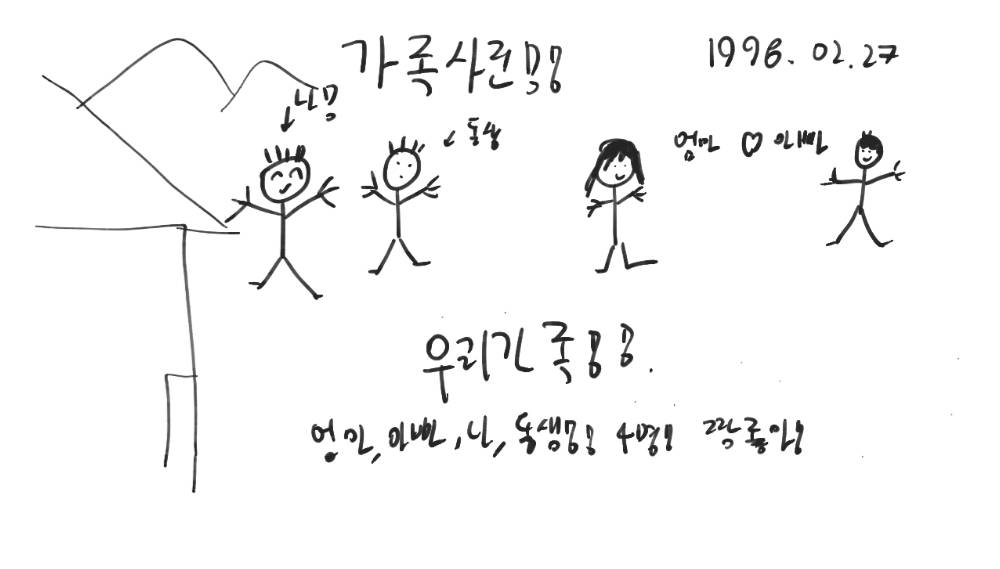 가족사진!!
1996.02.27
나
동생
엄마 ♡ 아빠
우리가족!!.
엄마, 아빠, 나, 동생!! 4명! 짱좋아!